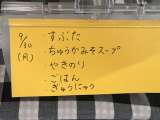 9/30
(月)
・すぶた
・ちゅうかみそスープ
・やきのり
・ごはん
・ぎゅうにゅう